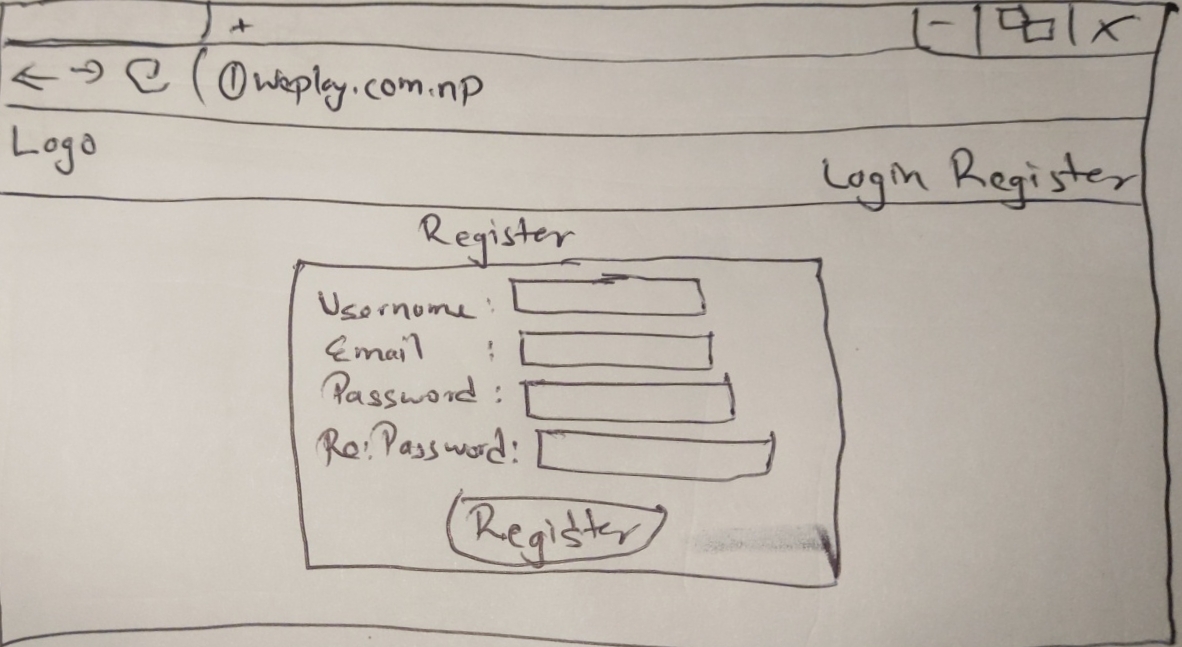 + - X
← → weplay.com.np
Logo
Login Register
Register
Username:
Email :
Password:
Re:Password:
Register